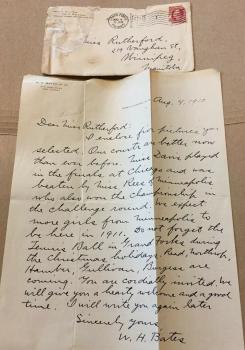 Miss Rutherford,
Vaughan St,
Winnipeg,
Manitoba
Aug. 4, 1910
Dear Miss Rutherford:
I enclose for pictures you
selected. Our courts are better now
than ever before. Miss Davis played
in the finals at Chicago and was
beaten by Miss Rees of Minneapolis
who also won the championship in
the challenge round. We expect
more girls from Minneapolis to
be here in 1911. Do not forget the
Tennis Ball in Grand Forks during
the Christmas holidays. Read, Northrop,
Hamber, Sullivan, Burgess are
coming. You are cordially invited. We
will give you a hearty welcome and a good
time. I will write you again later.
Sincerely yours,
W. H. Bates